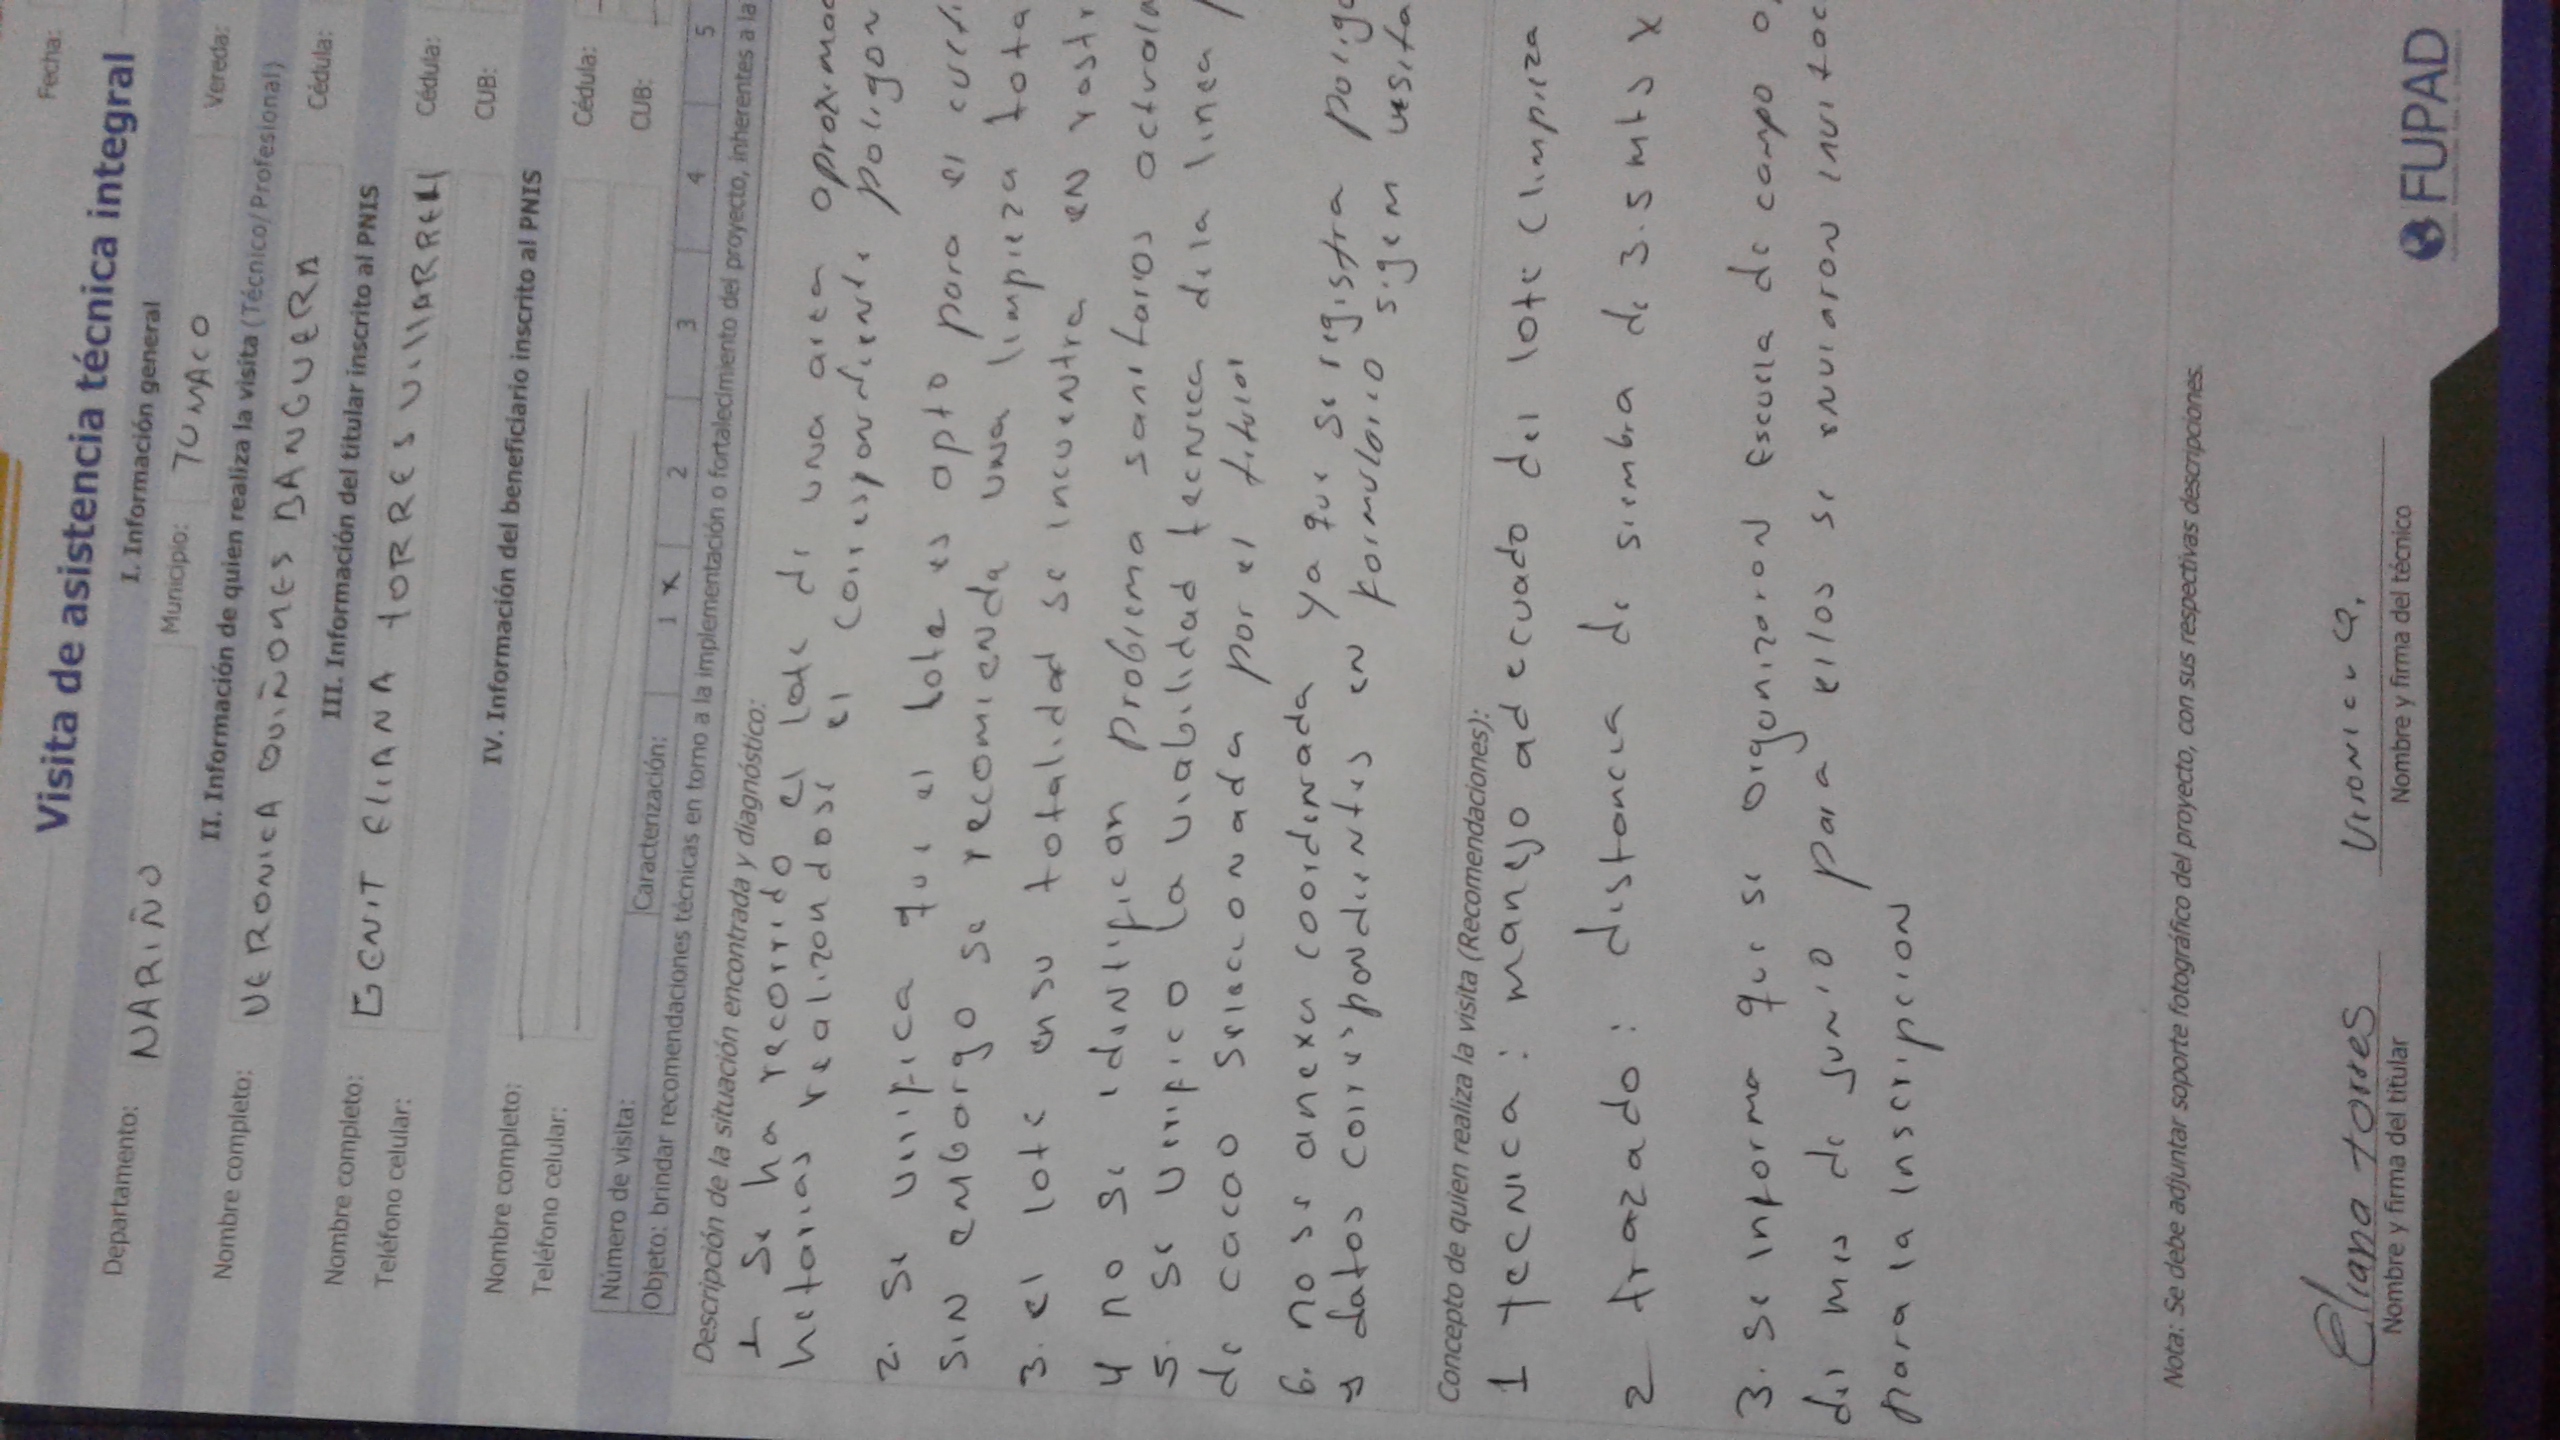 Fecha:
Visita de asistencia técnica integral
I. Información general
Departamento: NARIÑO Municipio: TUMACO Vereda:
II. Información de quien realiza la visita (Técnico/Profesional)
Nombre completo: VERONICA QUIÑONES BANGUERA Cédula:
III. Información del titular inscrito al PNIS
Nombre completo: ELIANA TORRES VILLARREAL Cédula:
Teléfono celular: CUB:
IV. Información del beneficiario inscrito al PNIS
Nombre completo: Cédula:
Teléfono celular: CUB:
Número de visita: Caracterización: 1 X 2 3 4 5
Objeto: brindar recomendaciones técnicas en torno a la implementación o fortalecimiento del proyecto, inherentes a la
Descripción de la situación encontrada y diagnóstico:
1 Se ha recorrido el lote de una area
hetarias realizondose el correspondiente poligon
2. Se verifica que el lote es apto para el
sin embargo se recomienda una limpieza tota
3. el lote en su totalidad se incuentra en rastr
4 no se identifican problema sanitarios actualm
5. se verifico la viabilidad tecnica de la linea
de cacao seleccionada por el titular
6. no se anexa coordenada ya que se registra
y datos correspondientes en formulario sigem
Concepto de quien realiza la visita (Recomendaciones):
1 tecnica: manejo adecuado del lote (limpieza
2 trazado: distancia de siembra de 3.5 mts x
3. se informa que se organizaron escuela de campo
del mes de junio para ellos se enviaron
para la inscripcion
Nota: Se debe adjuntar soporte fotográfico del proyecto, con sus respectivas descripciones.
Eliana torres Veronica Q.
Nombre y firma del titular Nombre y firma del técnico
FUPAD